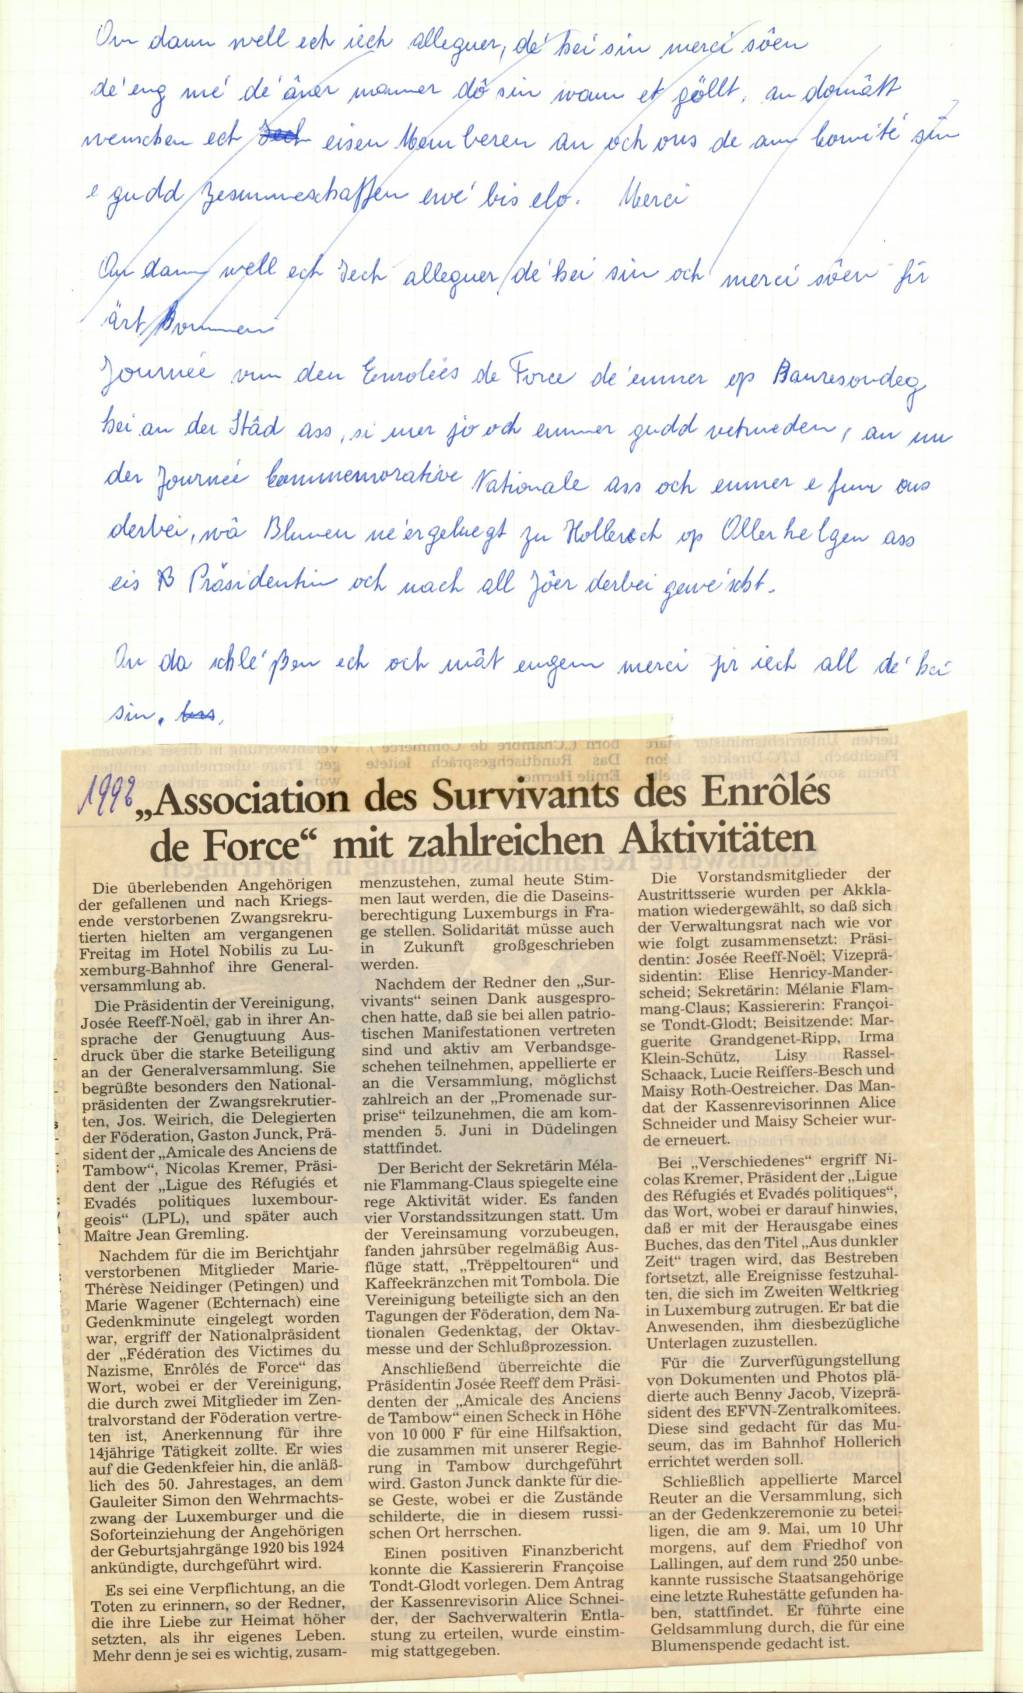 An dann well ech iech alleguer, dé hei sin merci sôen
dé eng mé dé âner manner dô sin wann et göllt, an domätt
wënschen ech Iech eisen Memberen an och ons de am Comité sin
e gudd Zesummeschaffen ewé bis elo. Merci
An dann well ech Iech alleguer dé hei sin och merci sôen fir
ärt Kommen
Journée vun den Enrolées de Force dé ëmmer op Bauresondeg
hei an der Stâd ass, si mer jo och ëmmer gudd vertrueden, an un
der Journée Commemorative Nationale ass och ëmmer e pur ons
derbei, wâ Blumen néergeluegt zu Hollerech op Allerhelgen ass
eis Präsidentin och nach all Jôer derbei gewéscht.
An da schléßen ech och mät engem merci fir iech all dé hei
sin.
1992
„Association des Survivants des Enrôlés
de Force“ mit zahlreichen Aktivitäten
Die überlebenden Angehörigen
der gefallenen und nach Kriegs-
ende verstorbenen Zwangsrekru-
tierten hielten am vergangenen
Freitag im Hotel Nobilis zu Lu-
xemburg-Bahnhof ihre General-
versammlung ab.
Die Präsidentin der Vereinigung,
Josée Reeff-Noël, gab in ihrer An-
sprache der Genugtuung Aus-
druck über die starke Beteiligung
an der Generalversammlung. Sie
begrüßte besonders den National-
präsidenten der Zwangsrekrutier-
ten, Jos. Weirich, die Delegierten
der Föderation, Gaston Junck, Prä-
sident der „Amicale des Anciens de
Tambow“, Nicolas Kremer, Präsi-
dent der „Ligue des Réfugiés et
Evadés politiques luxembour-
geois“ (LPL), und später auch
Maître Jean Gremling.
Nachdem für die im Berichtjahr
verstorbenen Mitglieder Marie-
Thérèse Neidinger (Petingen) und
Marie Wagener (Echternach) eine
Gedenkminute eingelegt worden
war, ergriff der Nationalpräsident
der „Fédération des Victimes du
Nazisme, Enrôlés de Force“ das
Wort, wobei er der Vereinigung,
die durch zwei Mitglieder im Zen-
tralvorstand der Föderation vertre-
ten ist, Anerkennung für ihre
14jährige Tätigkeit zollte. Er wies
auf die Gedenkfeier hin, die anläß-
lich des 50. Jahrestages, an dem
Gauleiter Simon den Wehrmachts-
zwang der Luxemburger und die
Soforteinziehung der Angehörigen
der Geburtsjahrgänge 1920 bis 1924
ankündigte, durchgeführt wird.
Es sei eine Verpflichtung, an die
Toten zu erinnern, so der Redner,
die ihre Liebe zur Heimat höher
setzten, als ihr eigenes Leben.
Mehr denn je sei es wichtig, zusam-
menzustehen, zumal heute Stim-
men laut werden, die die Daseins-
berechtigung Luxemburgs in Fra-
ge stellen. Solidarität müsse auch
in Zukunft großgeschrieben
werden.
Nachdem der Redner den „Sur-
vivants“ seinen Dank ausgespro-
chen hatte, daß sie bei allen patrio-
tischen Manifestationen vertreten
sind und aktiv am Verbandsge-
schehen teilnehmen, appellierte er
an die Versammlung, möglichst
zahlreich an der „Promenade sur-
prise“ teilzunehmen, die am kom-
menden 5. Juni in Düdelingen
stattfindet.
Der Bericht der Sekretärin Méla-
nie Flammang-Claus spiegelte eine
rege Aktivität wider. Es fanden
vier Vorstandssitzungen statt. Um
der Vereinsamung vorzubeugen,
fanden jahrsüber regelmäßig Aus-
flüge statt, „Trëppeltouren“ und
Kaffeekränzchen mit Tombola. Die
Vereinigung beteiligte sich an den
Tagungen der Föderation, dem Na-
tionalen Gedenktag, der Oktav-
messe und der Schlußprozession.
Anschließend überreichte die
Präsidentin Josée Reeff dem Präsi-
denten der „Amicale des Anciens
de Tambow“ einen Scheck in Höhe
von 10 000 F für eine Hilfsaktion,
die zusammen mit unserer Regie-
rung in Tambow durchgeführt
wird. Gaston Junck dankte für die-
se Geste, wobei er die Zustände
schilderte, die in diesem russi-
schen Ort herrschen.
Einen positiven Finanzbericht
konnte die Kassiererin Françoise
Tondt-Glodt vorlegen. Dem Antrag
der Kassenrevisorin Alice Schnei-
der, der Sachverwalterin Entla-
stung zu erteilen, wurde einstim-
mig stattgegeben.
Die Vorstandsmitglieder der
Austrittsserie wurden per Akkla-
mation wiedergewählt, so daß sich
der Verwaltungsrat nach wie vor
wie folgt zusammensetzt: Präsi-
dentin: Josée Reeff-Noël; Vizeprä-
sidentin: Elise Henricy-Mander-
scheid; Sekretärin: Mélanie Flam-
mang-Claus; Kassiererin: Françoi-
se Tondt-Glodt; Beisitzende: Mar-
guerite Grandgenet-Ripp, Irma
Klein-Schütz, Lisy Rassel-
Schaack, Lucie Reiffers-Besch und
Maisy Roth-Oestreicher. Das Man-
dat der Kassenrevisorinnen Alice
Schneider und Maisy Scheier wur-
de erneuert.
Bei „Verschiedenes“ ergriff Ni-
colas Kremer, Präsident der „Ligue
des Réfugiés et Evadés politiques“,
das Wort, wobei er darauf hinwies,
daß er mit der Herausgabe eines
Buches, das den Titel „Aus dunkler
Zeit“ tragen wird, das Bestreben
fortsetzt, alle Ereignisse festzuhal-
ten, die sich im Zweiten Weltkrieg
in Luxemburg zutrugen. Er bat die
Anwesenden, ihm diesbezügliche
Unterlagen zuzustellen.
Für die Zurverfügungstellung
von Dokumenten und Photos plä-
dierte auch Benny Jacob, Vizeprä-
sident des EFVN-Zentralkomitees.
Diese sind gedacht für das Mu-
seum, das im Bahnhof Hollerich
errichtet werden soll.
Schließlich appellierte Marcel
Reuter an die Versammlung, sich
an der Gedenkzeremonie zu betei-
ligen, die am 9. Mai, um 10 Uhr
morgens, auf dem Friedhof von
Lallingen, auf dem rund 250 unbe-
kannte russische Staatsangehörige
eine letzte Ruhestätte gefunden ha-
ben, stattfindet. Er führte eine
Geldsammlung durch, die für eine
Blumenspende gedacht ist.